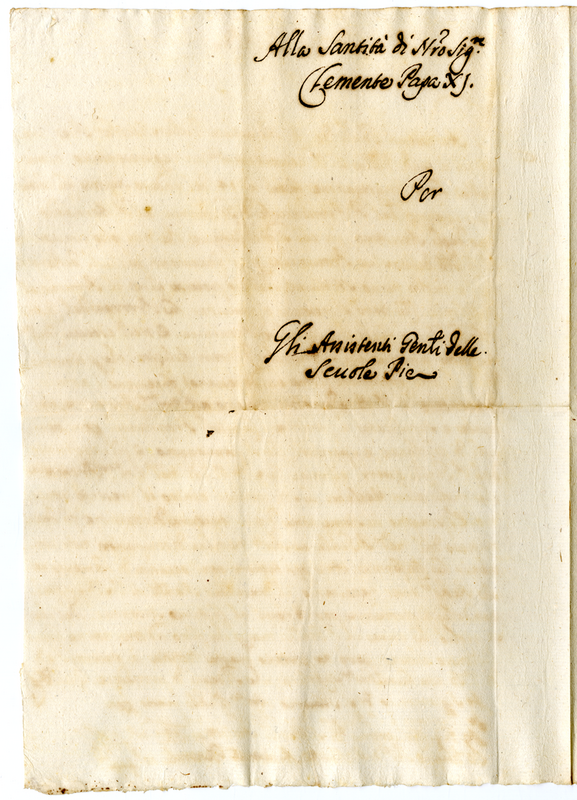 Alla Santità di Nrõ Sigre
Clemente Papa XJ.
Per
Gli Assistenti Genli delle
Scuole Pie